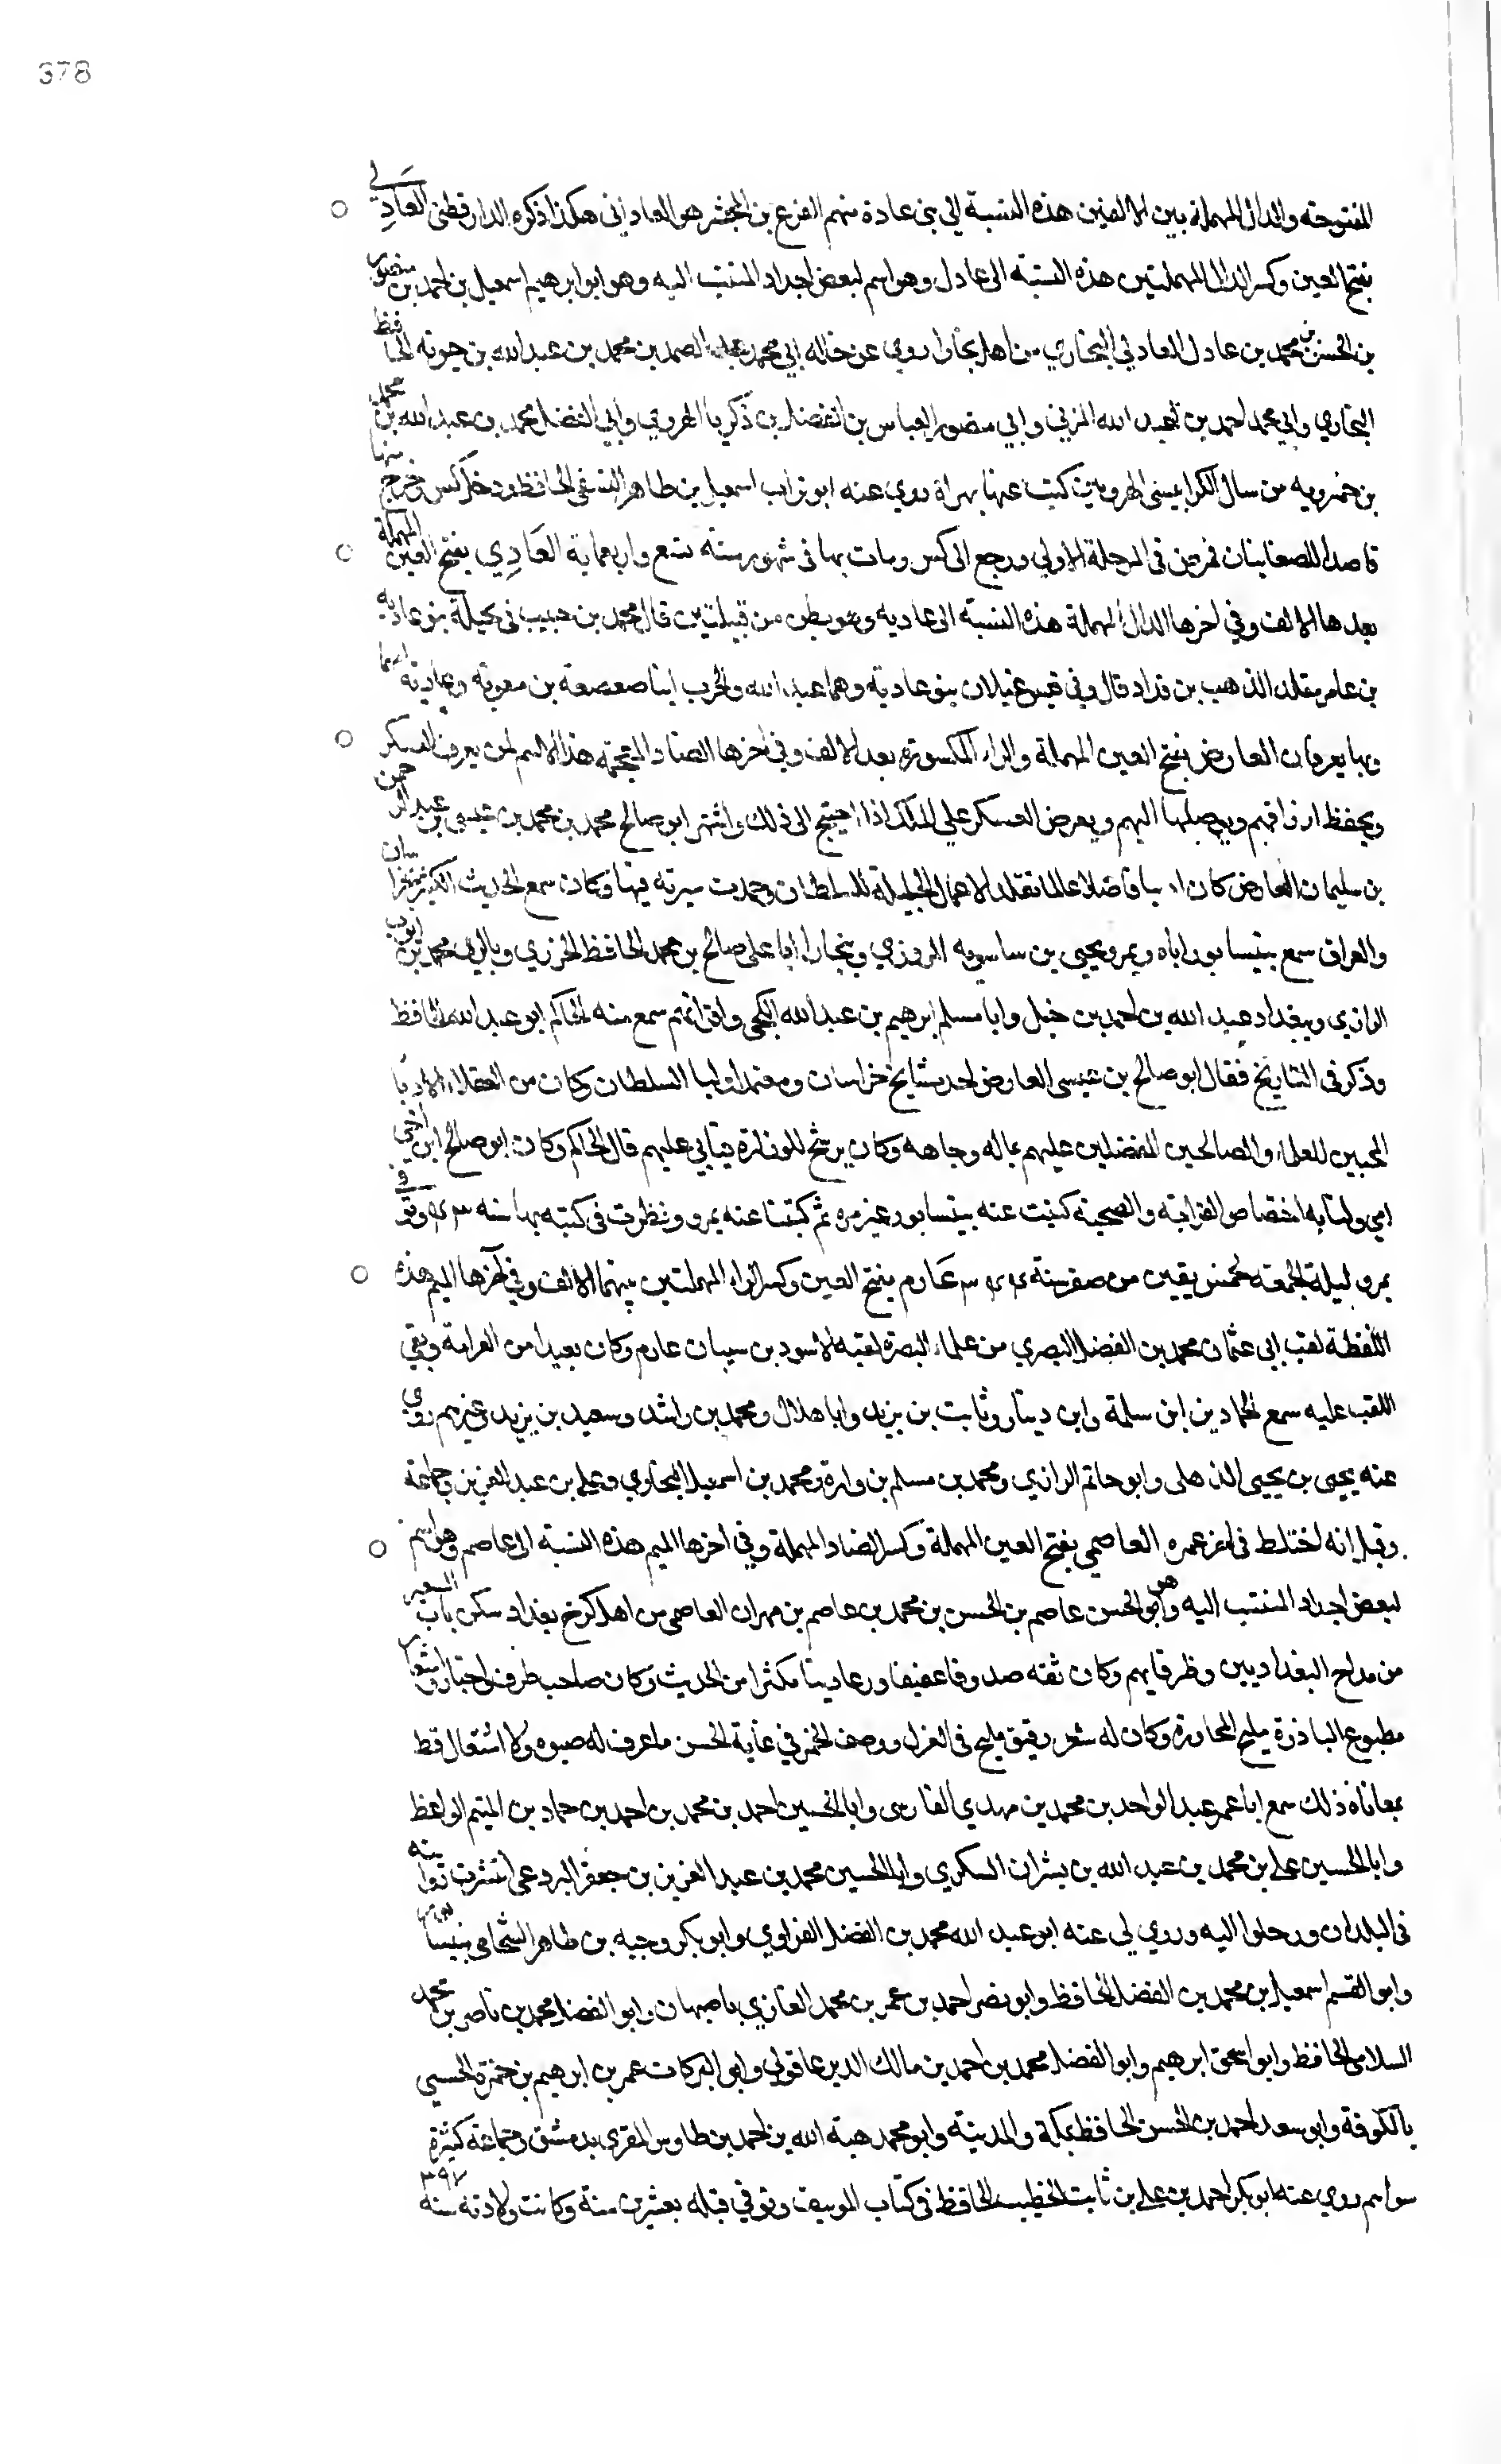 378
المفتوحة والدال المهملة بين الالفين هذه النسبة الى بني عادة منهم الفزع بن المجشر هو العاداني هكذا ذكره الدارقطني العادلي
بفتح العين وكسر الدال المهملتين هذه النسبة الى عادل وهو اسم لبعض اجداد المنتسب اليه وهو ابو ابرهيم اسمعيل بن احمد بن منصور
بن الحسن بن محمد بن عادل العادلي البخاري من اهل بخارا روي عن خاله ابي محمد عبد الصمد بن محمد بن عبد الله بن حيويه الحافظ
البخاري وابي محمد احمد بن عبد الله المزني و ابي منصور العباس بن الفضل بن زكريا الهروي وابي الفضل محمد بن عبد الله بن محمد
بن خميرويه من سال الكرابيسي الهرويين كتب عنها بهراة روي عنه ابو تراب اسمعيل بن طاهر النسفي الحافظ ودخل كس وخرج منها
قاصدا للصغانيان فمرض في المرحلة الاولي ورجع الى كس ومات بها في شهور سنة تسع واربعماية العادي بفتح العين المهملة
بعدها الالف وفي اخرها الدال المهملة هذه النسبة الى عادية وهو بطن من قبيلتين قال محمد بن حبيب في بجيلة بنو عادية
بن عامر مقلد الذهب بن قداد قال وفي قيس عيلان بنو عادية وهما عبد الله والحرب ابنا صعصعة بن معوية وعادية امهما
وبها يعرفان العارض بفتح العين المهملة والراء المكسورة بعد الالف وفي اخرها الضاد المعجمة هذا الاسم لمن يعرف العسكر
ويحفظ ارزاقهم ويوصلها اليهم ويعرض العسكر علي الملك اذا احتيج الى ذلك واشتهر ابو صالح محمد بن محمد بن عيسى بن عبد الرحمن
بن سليمان العارض كان اديبا فاضلا عالما تقلد الاعمال الجليلة للسلطان وحمدت سيرته فيها وكان سمع الحديث الكثير بخراسان
والعراق سمع بنيسابور اباه وبمرو يحيى بن ساسويه المروزي وببخارا ابا على صالح بن محمد الحافظ الجزري وبالري محمد بن ايوب
الرازي وببغداد عبد الله بن احمد بن حنبل وابا مسلم ابرهيم بن عبد الله الكجي واقرانهم سمع منه الحاكم ابو عبد الله الحافظ
وذكره في التاريخ فقال ابو صالح بن عيسى العارض احد مشايخ خراسان ومعتمد اوليا السلطان وكان من العقلاء الادبا
المحبين للعلماء والصالحين المفضلين عليهم بماله وجاهه وكان يرشح للوزارة فيابي عليهم قال الحاكم وكان ابو صالح ابن اخي
امي ولنا به اختصاص القرابة والصحبة كتبت عنه بنيسابور غير مرة ثم كتبنا عنه بمرو ونظرت في كتبه بها سنه ٣٤٣ وتوفي
بمرو ليلة الجمعة لخمس بقين من صفر سنة ٣٤٤ عارم بفتح العين وكسر الراء المهملتين بينهما الالف وفي آخرها الميم هذه
اللفظة لقب ابي عثمان محمد بن الفضل البصري من علماء البصرة لقبه الاسود بن سيبان عارم وكان بعيدا من العرامة وبقي
اللقب عليه سمع الحمادين ابن سلمة وابن دينار وثابت بن يزيد وابا هلال ومحمد بن راشد وسعيد بن يزيد وغيرهم روي
عنه يحيى بن يحيى الذهلى وابو حاتم الرازي ومحمد بن مسلم بن وارة ومحمد بن اسمعيل البخاري وعلي بن عبد العزيز وجماعة
وقيل انه اختلط في اخر عمره العاصمي بفتح العين المهملة وكسر الصاد المهملة وفي اخرها الميم هذه النسبة الى عاصم وهو اسم
لبعض اجداد المنتسب اليه وهو ابو الحسن عاصم بن الحسن بن محمد بن عاصم بن مهران العاصمي من اهل كرخ بغداد سكن باب الشعير
من مداح البغداديين وظرفايهم وكان ثقة صدوقا عفيفا ورعا دينا مكثرا من الحديث وكان صاحب طرف واخبار واشعار
مطبوع البادرة مليح المحاورة وكان له شعر رقيق مليح في الغزل ووصف الخمر في غاية الحسن ما عرف له صبوة ولا اشتغال قط
بمعاناة ذلك سمع ابا عمر عبد الواحد بن محمد بن مهدي الفارسي وابا الحسين احمد بن محمد بن احمد بن حماد بن المتيم الواعظ
وابا الحسين علي بن محمد بن عبد الله بن بشران السكري وابا الحسين محمد بن عبد العزيز بن جعفر البردعي انتشرت رواينه
في البلدان ورحلوا اليه وروي لي عنه ابو عبد الله محمد بن الفضل الفراوي وابو بكر وجيه بن طاهر الشحامي بنيسابور
وابو القسم اسمعيل بن محمد بن الفضل الحافظ وابو نصر احمد بن عمر بن محمد الغازي باصبهان وابو الفضل محمد بن ناصر بن محمد
السلامي الحافظ وابو اسحق ابرهيم وابو الفضل محمد بن احمد بن مالك الديرعاقولي وابو البركات عمر بن ابرهيم بن حمزة الحسيني
بالكوفة وابو سعد احمد بن الحسن الحافظ بمكة والمدينة وابو محمد هبة الله بن احمد بن طاوس المقري بدمشق وجماعة كثيرة
سواهم روي عنه ابو بكر احمد بن علي بن ثابت الخطيب الحافظ في كتاب الموتنف وتوفي قبله بعشرين سنة وكانت ولادته سنه ٣٩٧